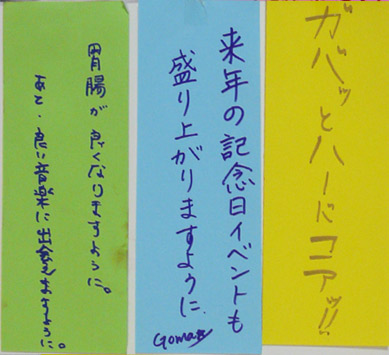 ガバッとハードコアッ!!
来年の記念日イベントも
盛り上がりますように
Goma☆
胃腸が良くなりますように。
あと・良い音楽に出会えますように。